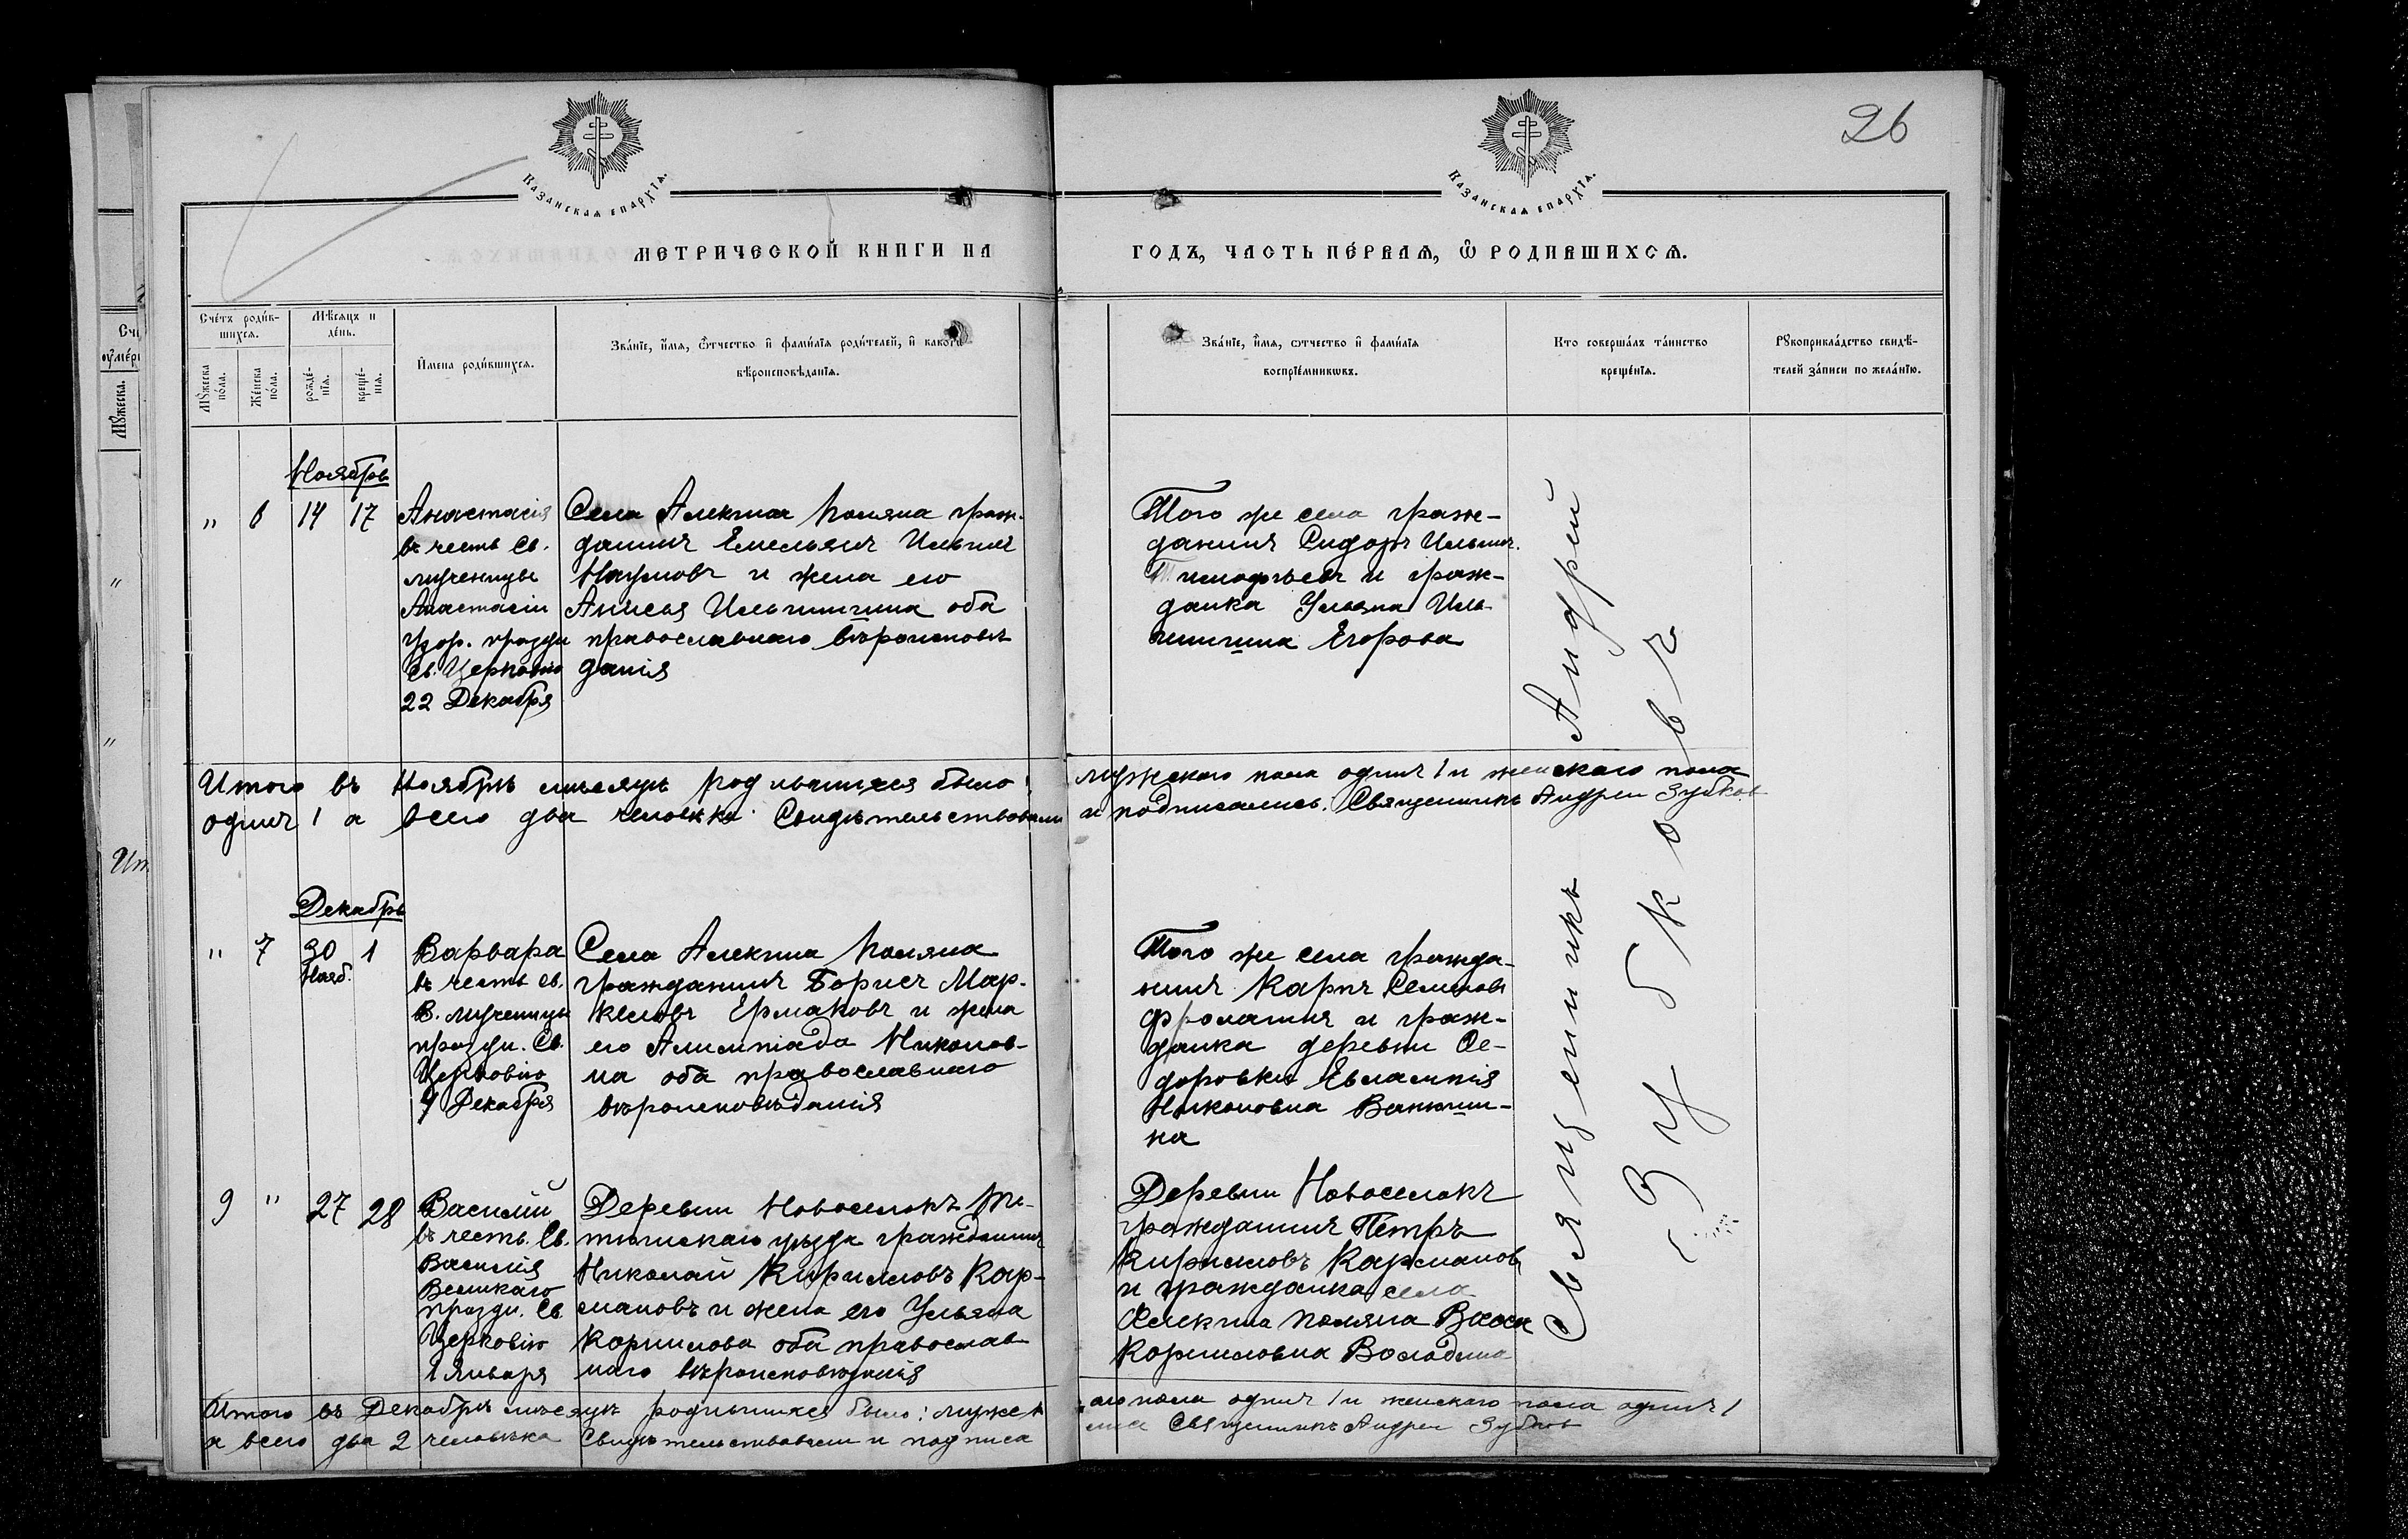 26
КАЗАНСКАѦ ЕПАРХІѦ.
КАЗАНСКАѦ ЕПАРХІѦ.
МЕТРИЧЕСКОЙ КНИГИ НА
ГОДЪ, ЧАСТЬ ПЕ́РВАѦ, Ѡ РОДИВШИХСѦ.
Сче́тъ роди́в-
шихсѧ.
Мѣ́сяцъ и
де́нь.
Мꙋжеска
по́ла.
Же́нска
по́ла.
рожде́-
нїѧ.
креще́-
нїѧ.
И́мена роди́вшихсѧ.
Зва́нїе, и́мѧ, о́тчество и фами́лїѧ роди́телей, и како́гѡ
вѣроисповѣ́данїѧ.
Зва́нїе, и́мѧ, о́тчество и фами́лїѧ
воспрїе́мникѡвъ.
Кто соверша́лъ та́инство
креще́нїѧ.
Рꙋкоприкла́дство свидѣ́-
телей за́писи по жела́нїю.
Ноябрь
" 6 14 17
Анастасія
въ честь св.
мученицы
Анастасіи
Узор. праздн
св. Церковію
22 Декабря
Села Алекина Поляна граж-
данинъ Емельянъ Ильинъ
Наумовъ и жена его
Анисья Ильинишна оба
православнаго вѣроисповѣ
данія
Того же села граж-
данинъ Сидоръ Ильинъ
Тимофѣевъ и граж-
данка Ульяна Иль
инишна Егорова
Итого въ Ноябрѣ мѣсяцѣ родившихся было:
мужескаго пола одинъ 1 и женскаго пола
одинъ 1 а всего два человѣка. Свидѣтельствовали
и подписались. Священникъ Андрей Зубков
Декабрь
" 7 30 1
Нояб.
Варвара
въ честь св.
В. мученицы
праздн. Св.
Церковію
4 Декабря
Села Алекина Поляна
гражданинъ Борисъ Мар-
келовъ Ермаковъ и жена
его Алимпіада Никонов-
на оба православнаго
вѣроисповѣданія
Того же села гражда-
нинъ Карпъ Семинов
Фролагинъ и граж-
данка деревни Ѳе-
доровки Евлампія
Никоновна
на
9 " 27 28
Василій
въ честь. Св.
Василія
Великаго
праздн. Св.
Церковію
1 Января
Деревни Новоселокъ Те-
тюшскаго уѣзда гражданинъ
Николай Кирилловъ Кар-
мановъ и жена его Ульяна
Корнилова оба православ
наго вѣроисповѣданія
Деревни Новоселокъ
гражданинъ Петръ
Кирилловъ Кармановъ
и гражданка села
Алекина Поляна Васса
Корниловна Володина
Священникъ Андрей
Зубковъ
Итого въ Декабрѣ мѣсяцѣ родившихся было: мужск
аго пола одинъ 1 и женскаго пола одинъ 1
а всего два 2 человѣка Свидѣтельствовали и подписа
лись Священникъ Андрей Зубков
Счё
оумер
Мꙋжеска.
"
"
Ит